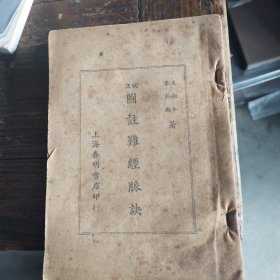 王叔和
秦越人
著
校正
圖註難經脈訣
上海春明書店印行